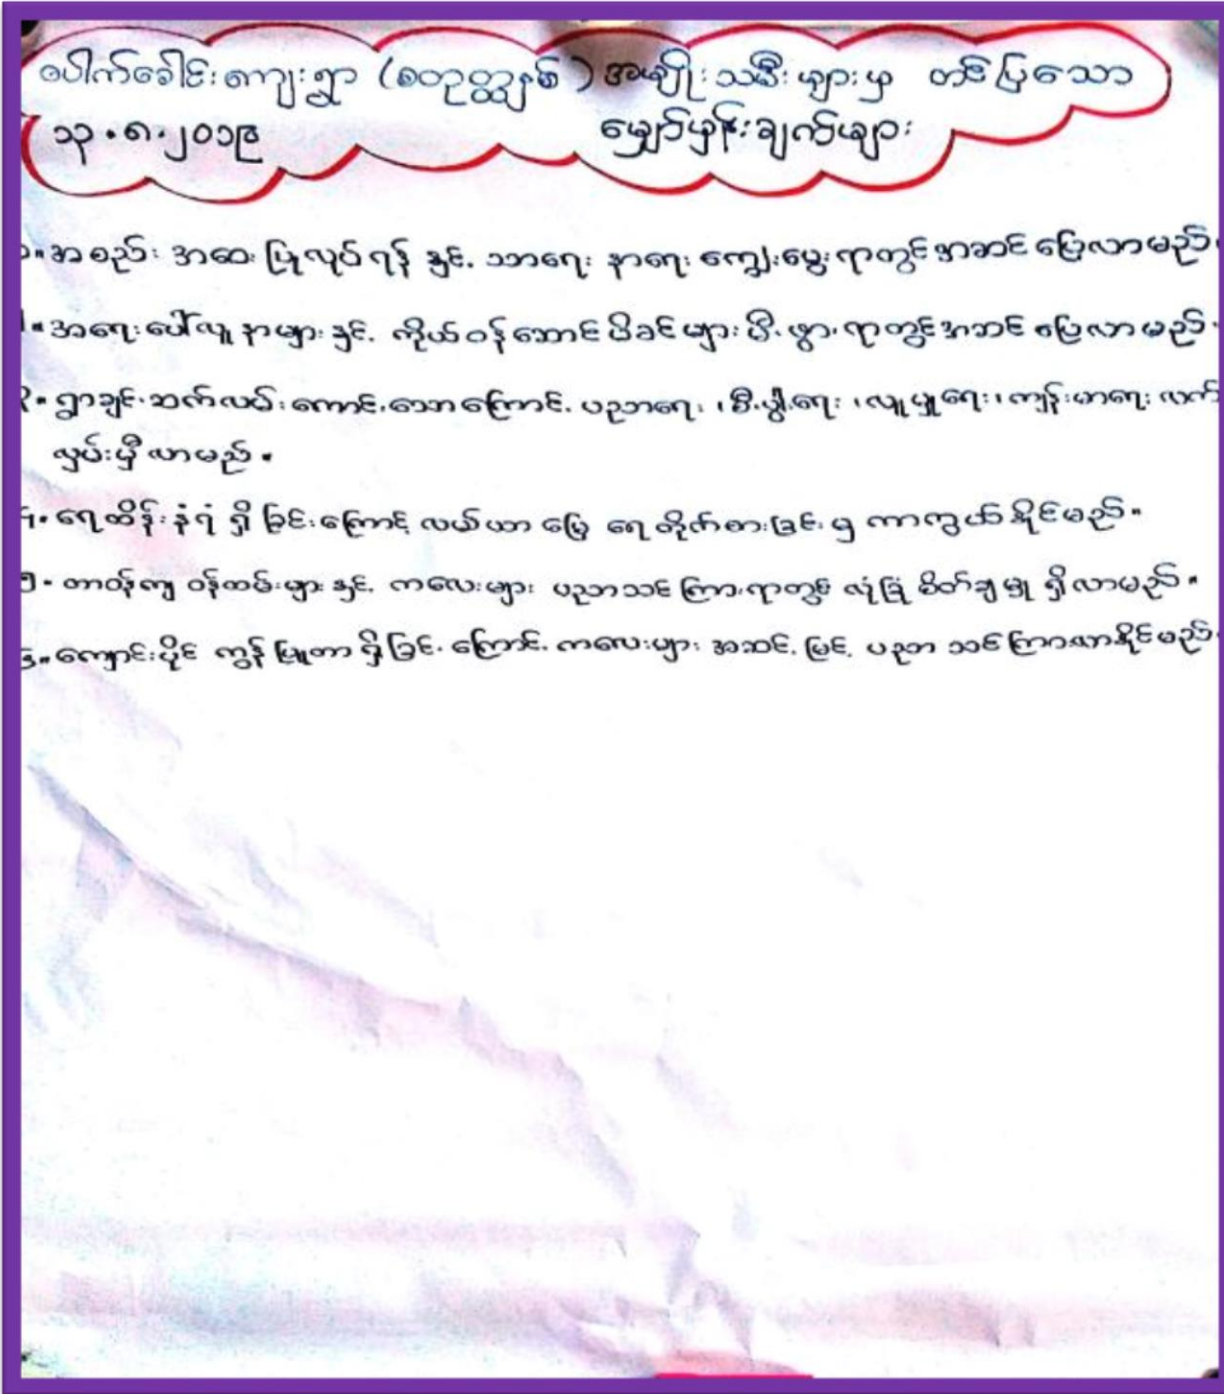 ပေါက်ခေါင်းကျေးရွာ (စတုတ္ထနှစ်) အမျိုးသမီးများမှ တင်ပြသော
၁၃.၈.၂၀၁၉ မျှော်မှန်းချက်များ
၁။ အစည်းအဝေး ပြုလုပ်ရန် နှင့် သာရေး နာရေး ကျွေးမွေးရာတွင် အဆင်ပြေလာမည်
၂။ အရေးပေါ်လူနာများ နှင့် ကိုယ်ဝန်ဆောင် မိခင်များ မီးဖွားရာတွင် အဆင်ပြေလာမည်
၃။ ရွာချင်းဆက်လမ်းကောင်းသောကြောင့် ပညာရေး၊ စီးပွါးရေး၊ လူမှုရေး၊ ကျန်းမာရေး လက်
လှမ်းမှီလာမည်။
၄။ ရေထိန်းနံရံ ရှိခြင်းကြောင့် လယ်ယာမြေ ရေတိုက်စားခြင်းမှ ကာကွယ်နိုင်မည်။
၅။ တာဝန်ကျ ဝန်ထမ်းများနှင့် ကလေးများ ပညာသင်ကြားရာတွင် လုံခြုံစိတ်ချမှု ရှိလာမည်။
၆။ ကျောင်းပိုင် ကွန်ပြူတာ ရှိခြင်းကြောင့် ကလေးများ အဆင့်မြင့် ပညာ သင်ကြားလာနိုင်မည်